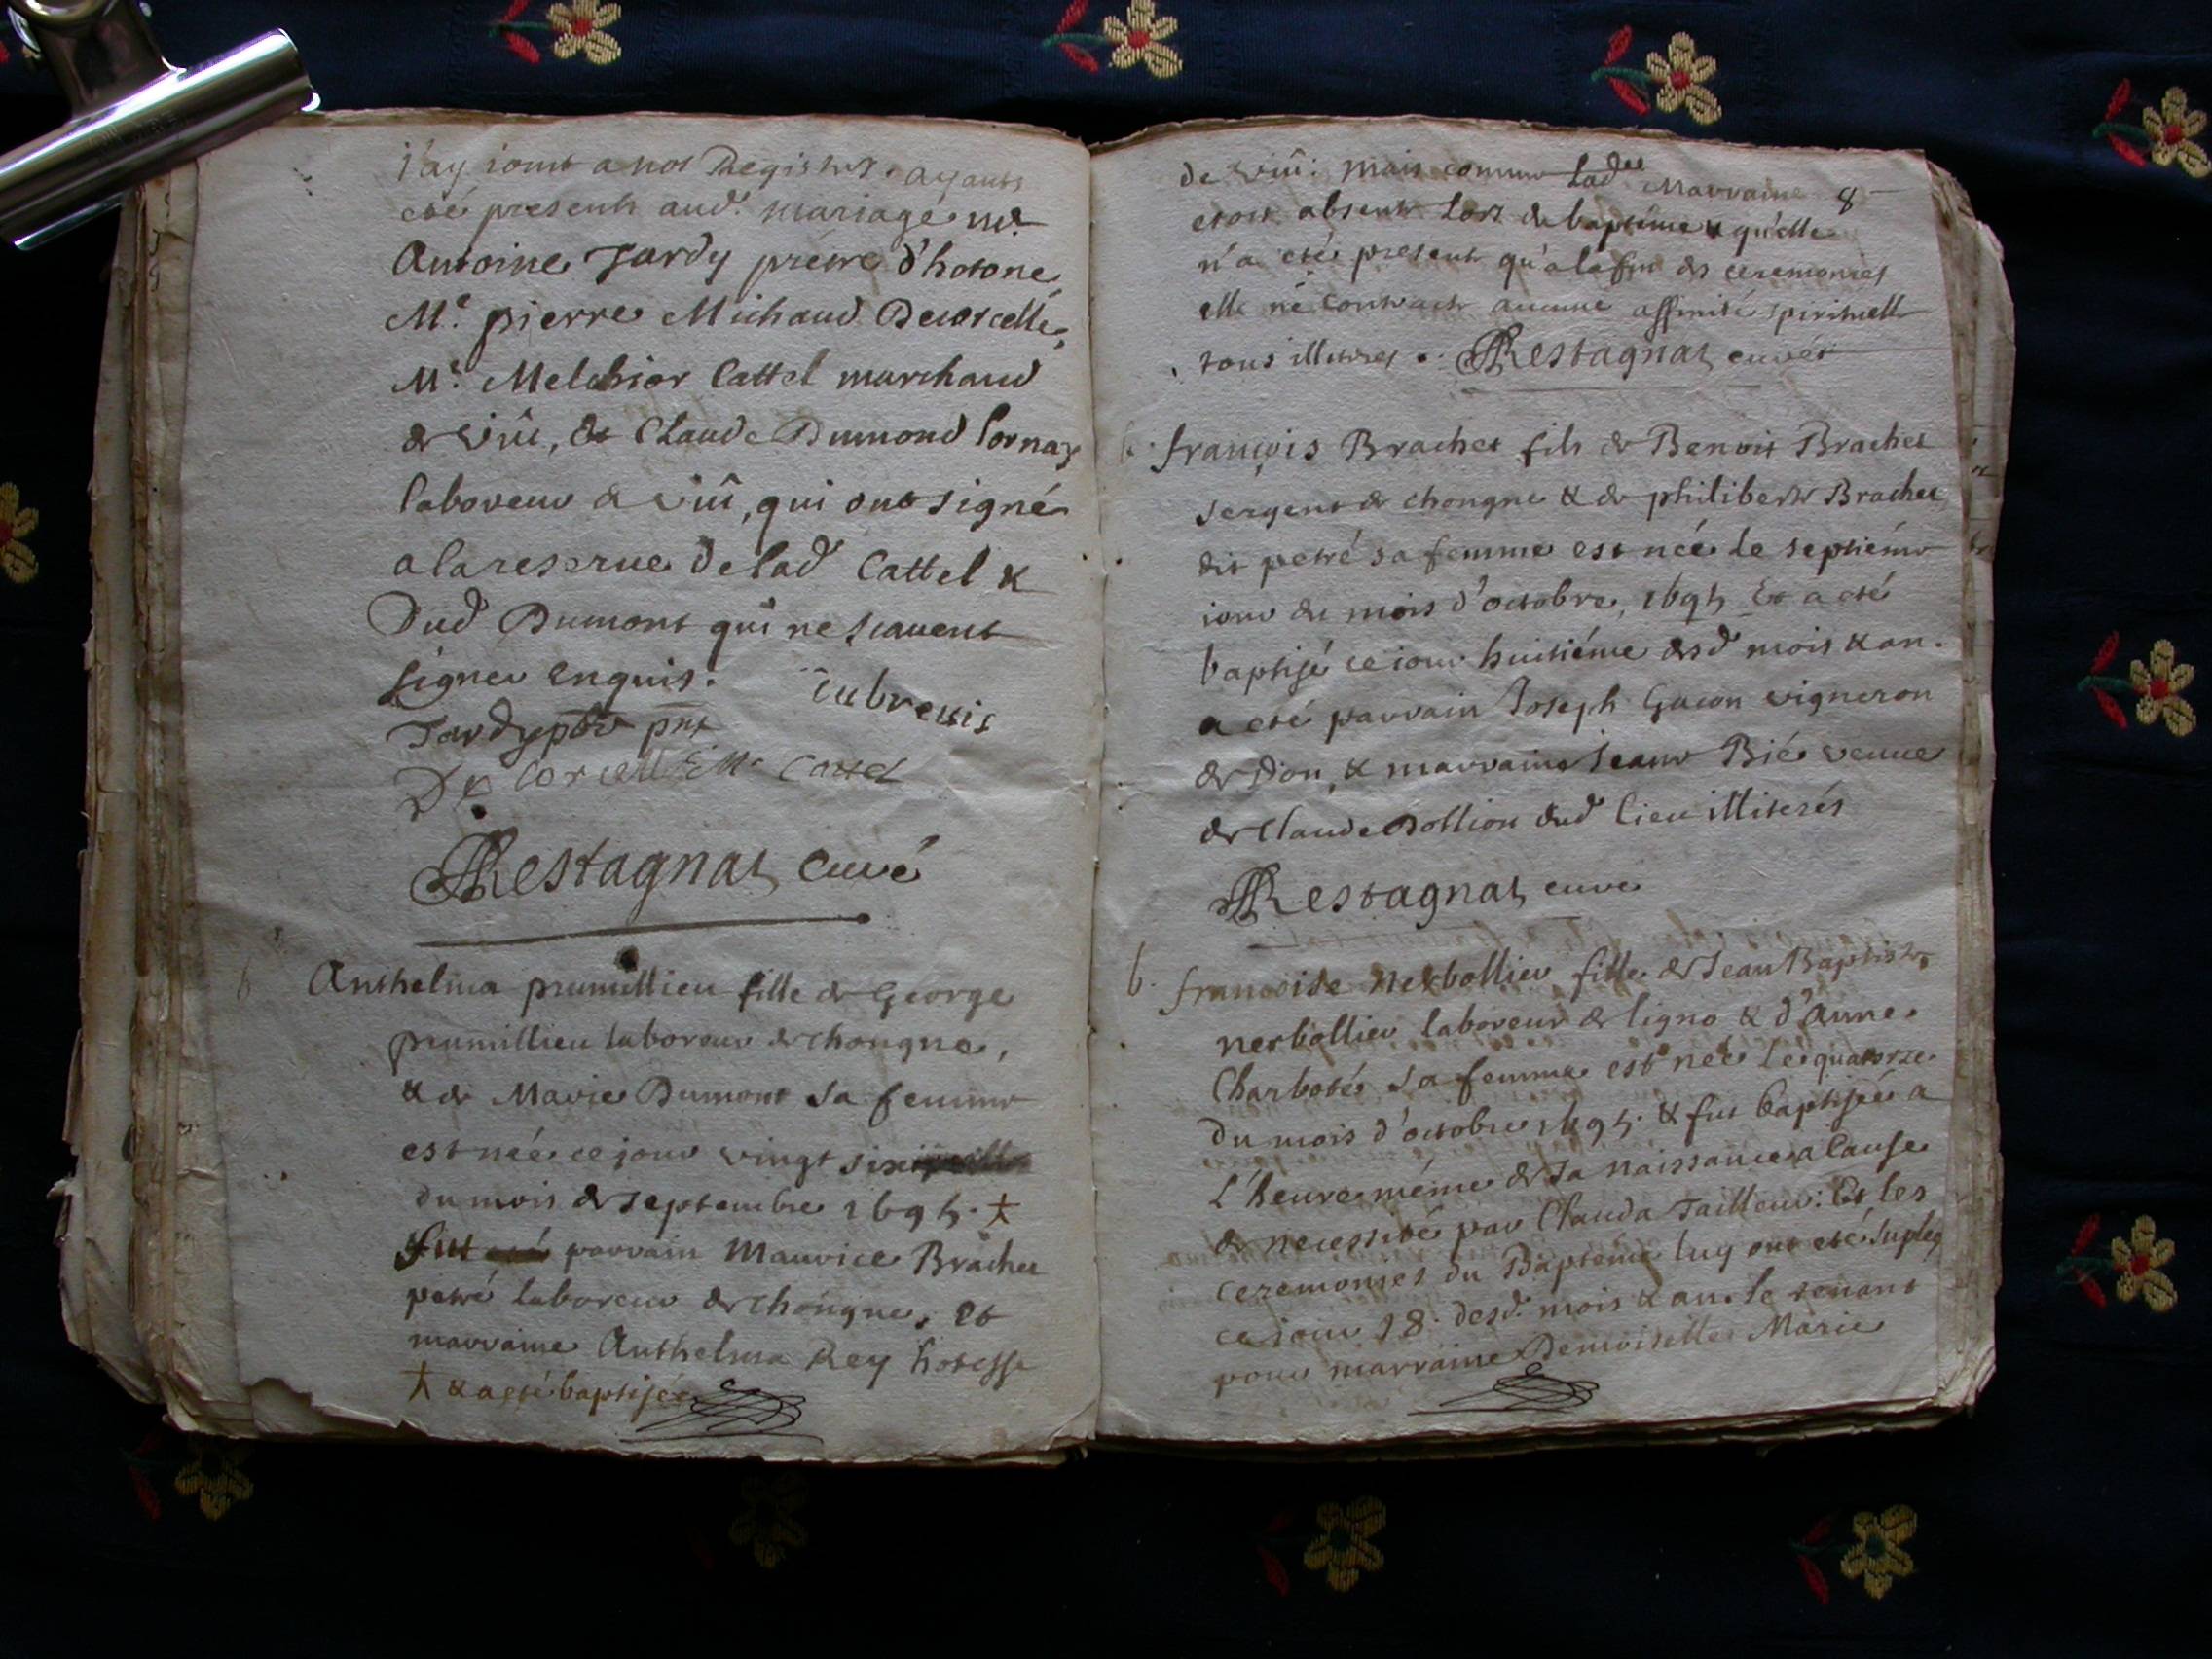 j'ay joint a nos Registres. ayants
eté presents aud. mariage mre
Antoine Tardy prétre d'hotone,
Mr. pierre Michaud Decorcelle,
Mr. Melchior Cattel marchand
de viû, et Claude Dumond Cornaz
laboreur de viû, qui ont signé
a la reserue de lad Cattel &
dud Dumont qui ne scauent
signer enquis. Dubreuis
Tardy pbr pnt
De Corcelle M Cattel
Restagnat curé
b Anthelma prumillieu fille de George
prumillieu laboreur de chongne,
& de Marie Dumont sa femme
est née ce jour vingt six
du mois de septembre 1695.
fut parrain Maurice Brachet
petré laboreur de chongne, et
marraine Anthelma Rey hotesse
& a eté baptisée
de viû: mais comme ladte marraine 8
etoit absente lors du baptéme & qu'elle
n'a eté presente qu'a la fin des ceremonies
elle ne contracte aucune affinité spirituelle
tous illiterés. Restagnat curé
b. françois Brachet fils de Benoit Brachet
sergent de chongne & de philiberte Brachet
dit petré sa femme est née le septiéme
jour du mois d'octobre, 1695 Et a eté
baptisé ce jour huitiéme desd mois & an.
a eté parrain Joseph Gacon vigneron
de Don, & marraine Jeane Bié veuue
de Claude Dollion dud lieu illiterés
Restagnat curé
b. francoise Nerbollier fille de Jean Baptiste
nerbollier laboreur de ligno & d'Anne
Charboté sa femme est née le quatorze
du mois d'octobre 1695. & fut baptisée a
l'heure méme de sa naissance a cause
de necessité par Clauda Tailleur: Et les
ceremonies du Baptéme luy ont eté suplées
ce jour 18. desd. mois & an. le tenant
pour marraine Demoiselle Marie